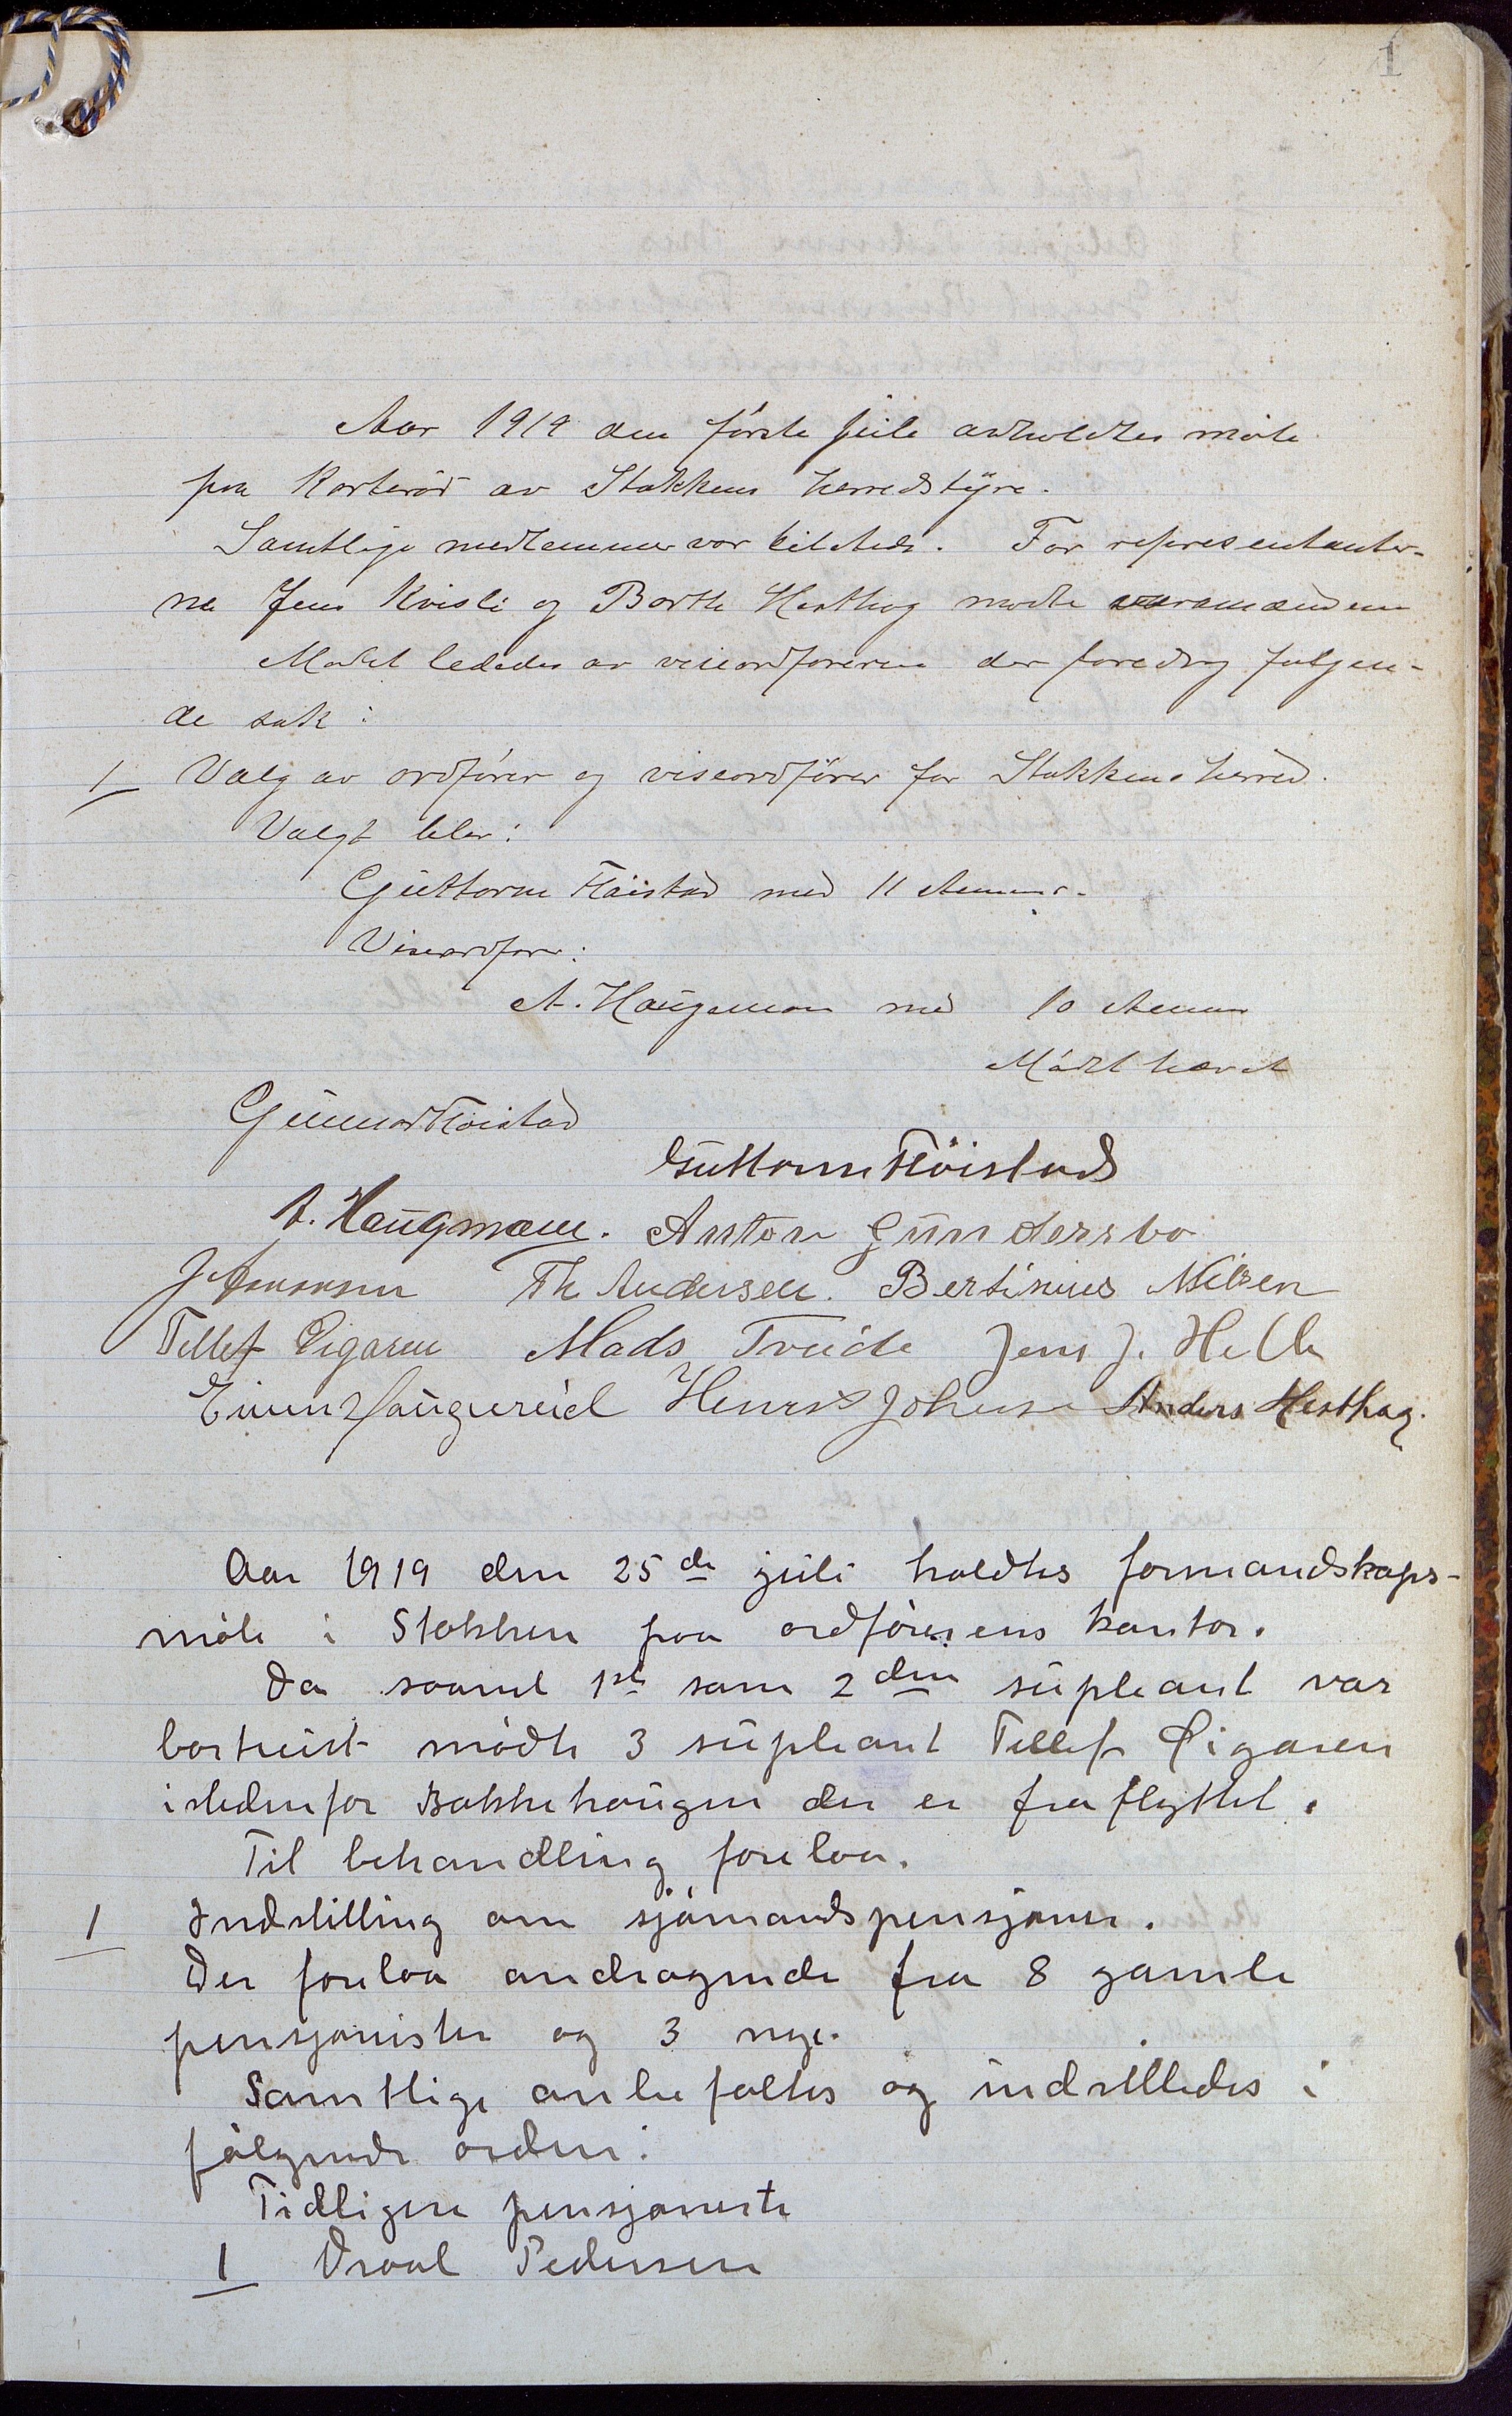 1
Aar 1919 den første juli avholdtes møte
paa Korterød av Stokkens herredstyre.
Samtlige medlemmer var tilstede. For representanter-
ne Jens Kvisli og Borth Hesthag mødte varamændene
Mødet lededes av viseordføreren der foredrog følgen-
de sak:
1 Valg av ordfører og viseordfører for Stokkens herred.
Valgt blev:
Guttorm Fløistad med 11 stemmer.
Viseordfører:
A. Haugmann med 10 stemmer
Mødet hævet
Gunnar Fløistad
Guttorm Fløistad
A. Haugmann. Anton Gundersbo
Th Andersen. Bertinius Nilsen
Tellef Øigaren Mads Trude Jens J. Helle
Einar Haugereid Henrik Johnsen Anders Hesthag.
Aar 1919 den 25de juli holdtes formandskaps-
møte i Stokken paa ordførerens kontor.
Da saavel 1ste som 2den supleant var
bortreist mødte 3 supleant Tellef Øigaren
istedenfor Bakkehaugen der er fraflyttet.
Til behandling forelaa.
1 Indstilling om sjømandspensjoner.
Der forelaa andragende fra 8 gamle
pensjonister og 3 nye.
Samtlige anbefaltes og indstilledes i
følgende orden:
Tidligere pensjonister
1 Osval Pedersen